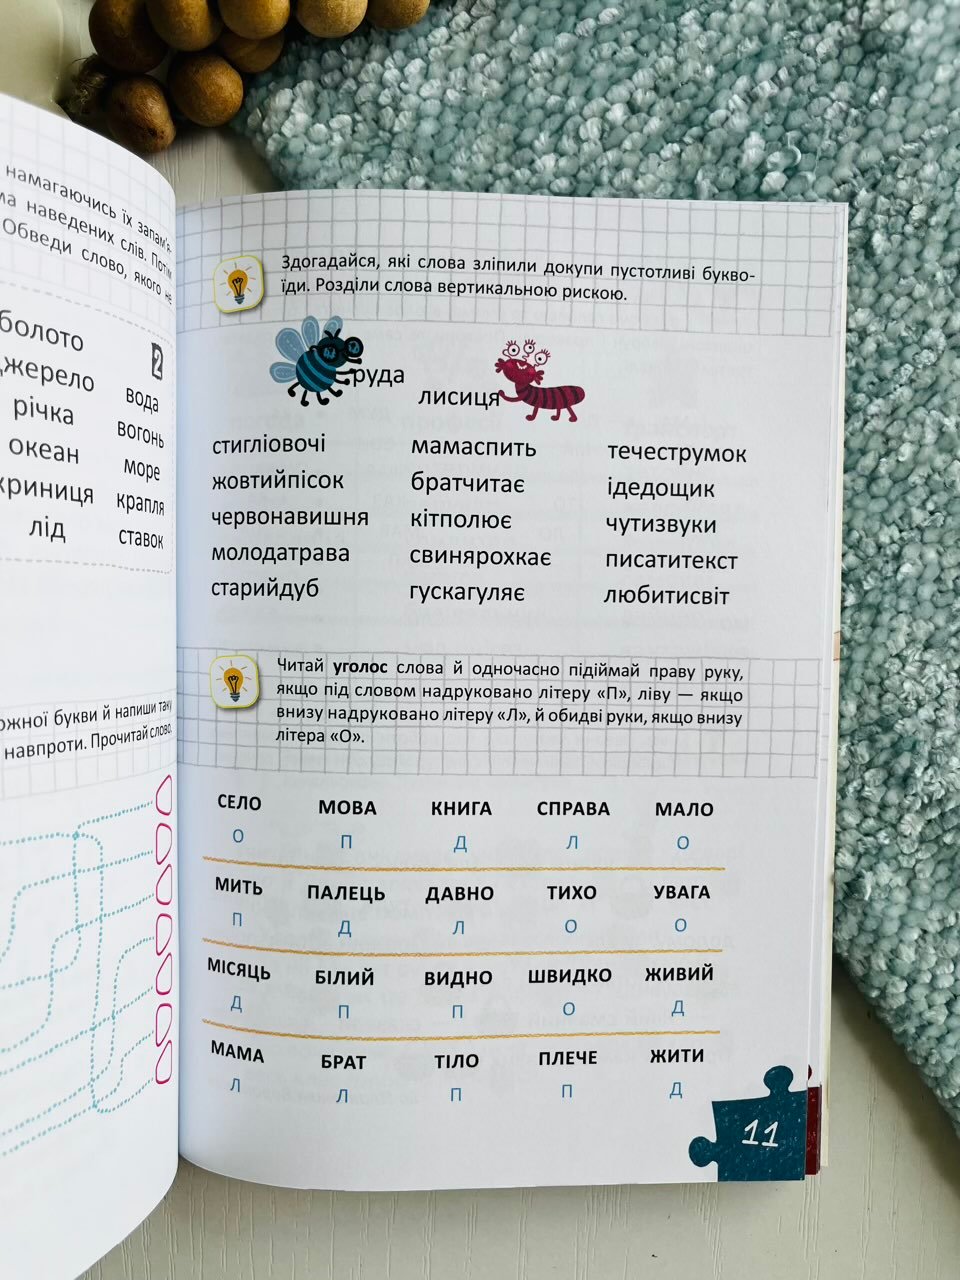 намагаючись їх запам'я-
наведених слів. Потім
Обведи слово, якого не
болото
джерело
річка
океан
криниця
лід
2
вода
вогонь
море
крапля
ставок
букви й напиши таку
навпроти. Прочитай слово.
Здогадайся, які слова зліпили докупи пустотливі букво-
їди. Розділи слова вертикальною рискою.
руда
лисиця
стигліовочі мамаспить течеструмок
жовтийпісок братчитає ідедощик
червонавишня кітполює чутизвуки
молодатрава свинярохкає писатитекст
старийдуб гускагуляє любитисвіт
Читай уголос слова й одночасно підіймай праву руку,
якщо під словом надруковано літеру «П», ліву — якщо
внизу надруковано літеру «Л», й обидві руки, якщо внизу
літера «О».
СЕЛО МОВА КНИГА СПРАВА МАЛО
О П Д Л О
МИТЬ ПАЛЕЦЬ ДАВНО ТИХО УВАГА
П Д Л О О
МІСЯЦЬ БІЛИЙ ВИДНО ШВИДКО ЖИВИЙ
Д П П О Д
МАМА БРАТ ТІЛО ПЛЕЧЕ ЖИТИ
Л Л П П Д
11